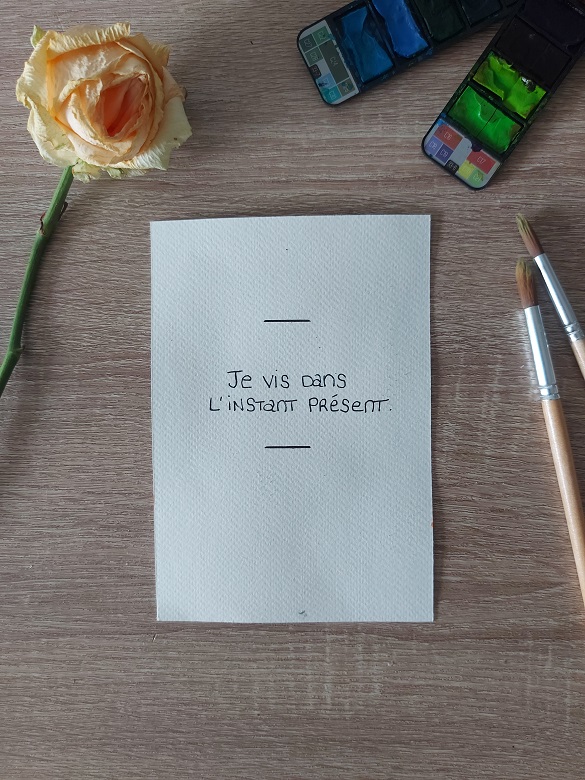 Je vis dans
l'instant présent.